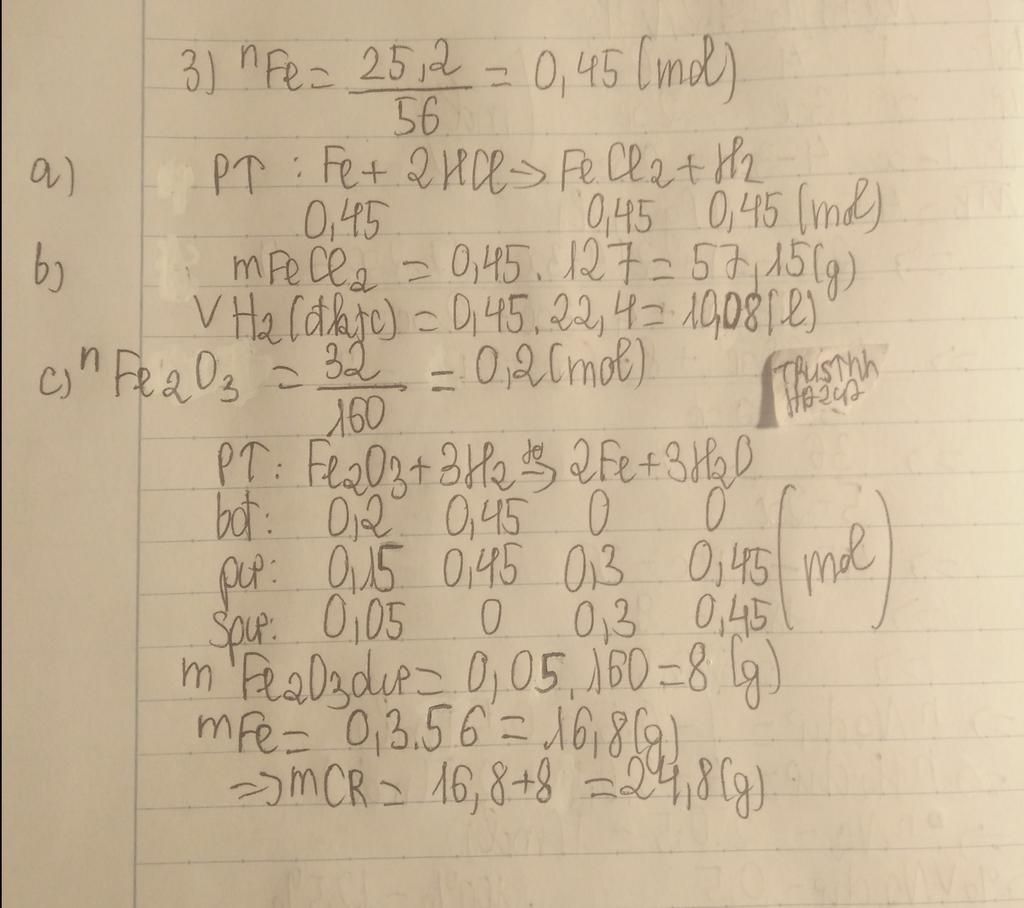 3) nFe = 25,2 / 56 = 0,45 (mol)
a) PT : Fe + 2HCl → FeCl2 + H2
0,45 0,45 0,45 (mol)
b) mFeCl2 = 0,45. 127 = 57,15(g)
VH2 (đktc) = 0,45. 22,4 = 10,08(l)
c) nFe2O3 = 32 / 160 = 0,2 (mol)
TRUSTnn
PT: Fe2O3 + 3H2 → 2Fe + 3H2O
bđ: 0,2 0,45 0 0
pư: 0,15 0,45 0,3 0,45 (mol)
spư: 0,05 0 0,3 0,45
m Fe2O3dư = 0,05. 160 = 8 (g)
mFe = 0,3.56 = 16,8(g)
=> mCR = 16,8+8 = 24,8(g)